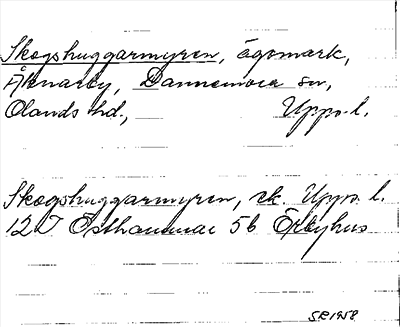 Skogshuggarmyren, ägomark,
Åknarby, Dannemora sn,
Olands hd., Uppo. l.
Skogshuggarmyren, sk. Uppo. l.
12 I Östhammar 5b Örbyhus
S.E. 1958